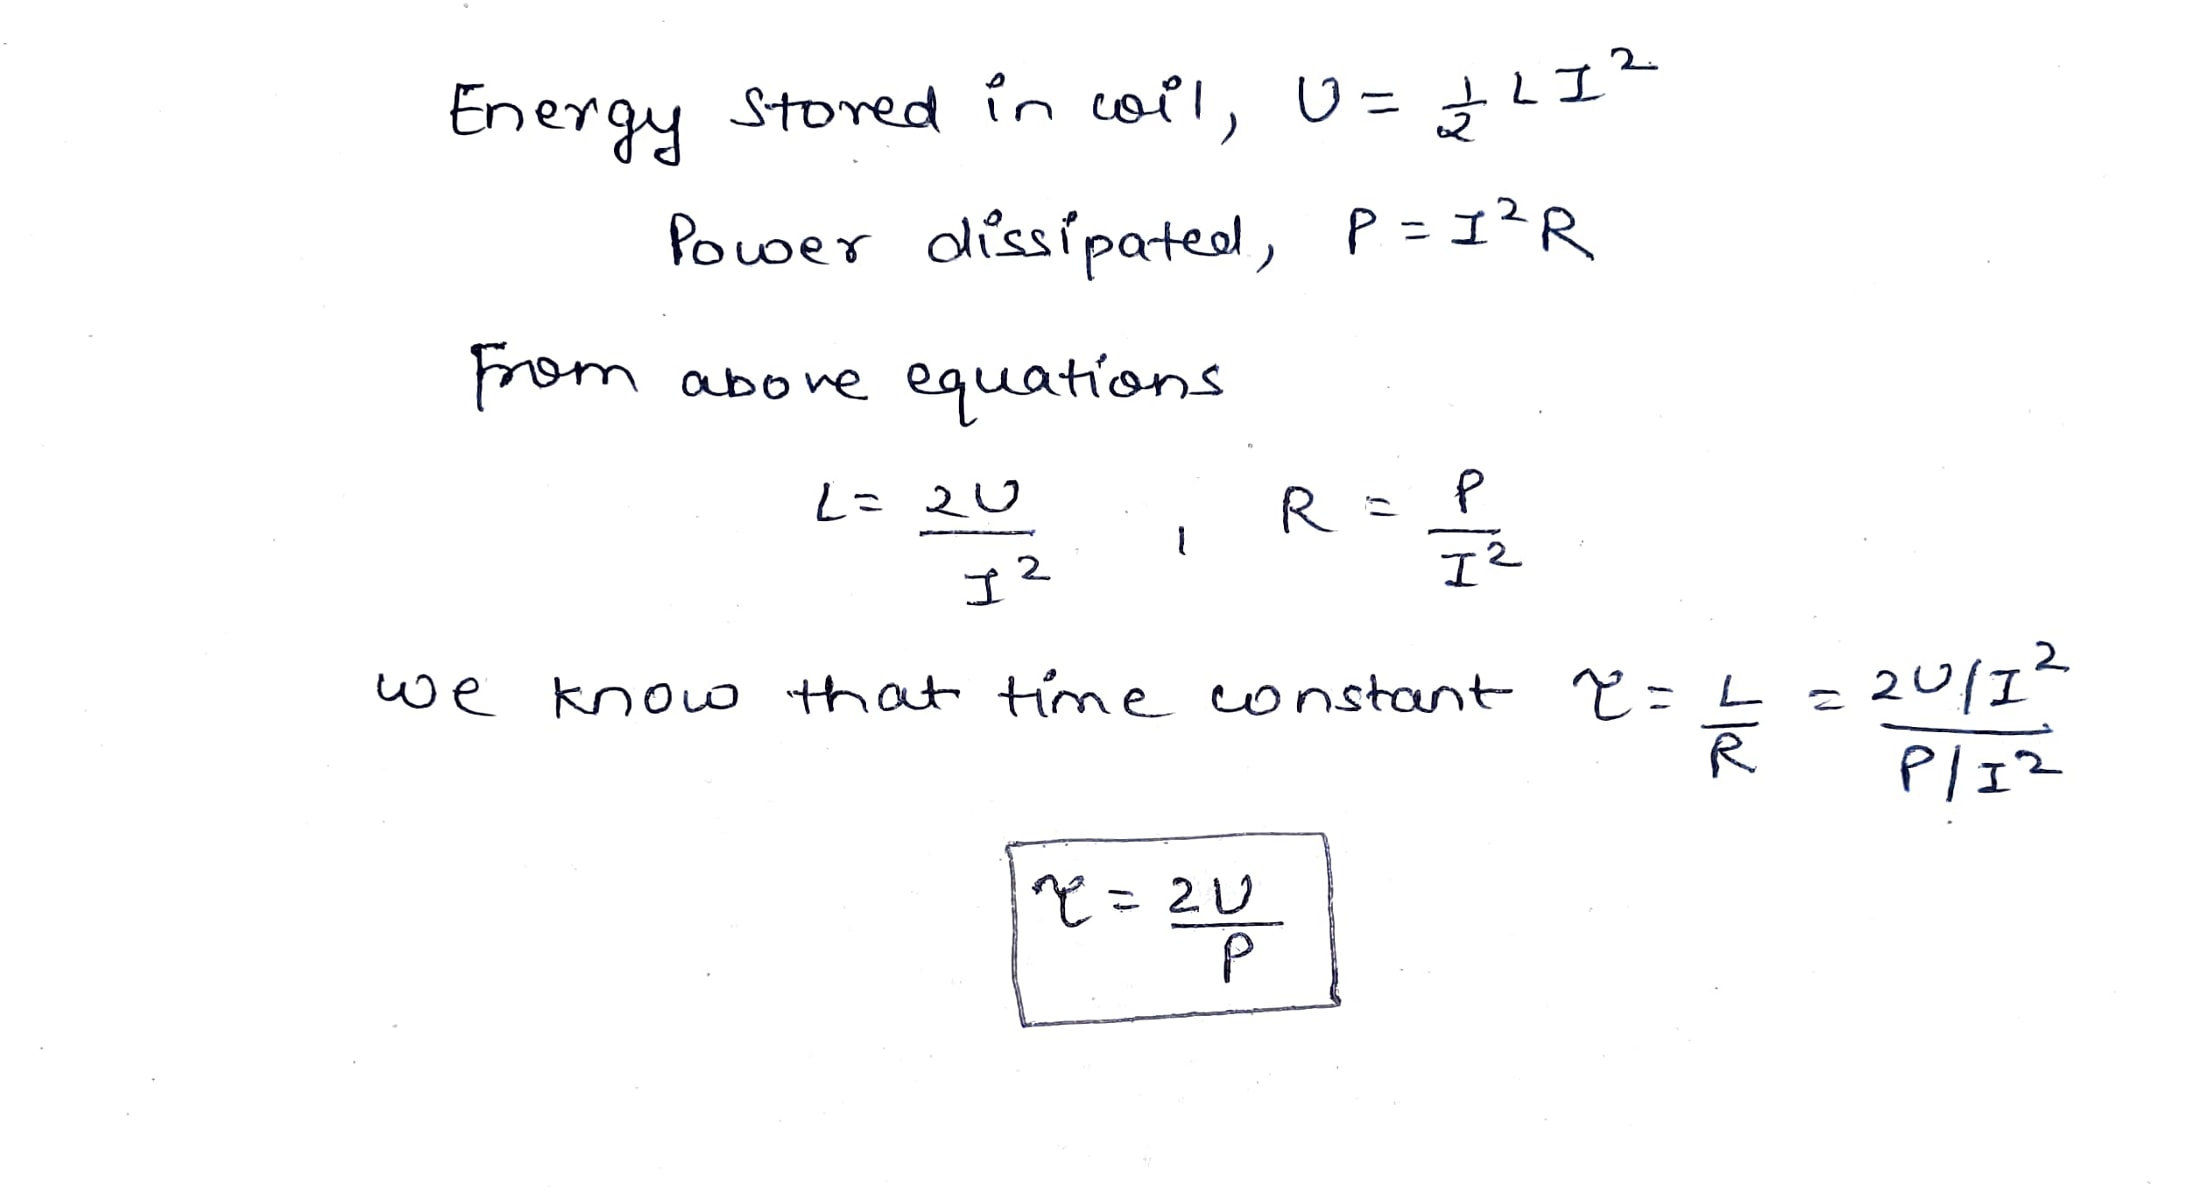 Energy stored in coil, U = 1/2 L I²
Power dissipated, P = I²R
From above equations
L = 2U/I² , R = P/I²
we know that time constant τ = L/R = (2U/I²)/(P/I²)
τ = 2U/P